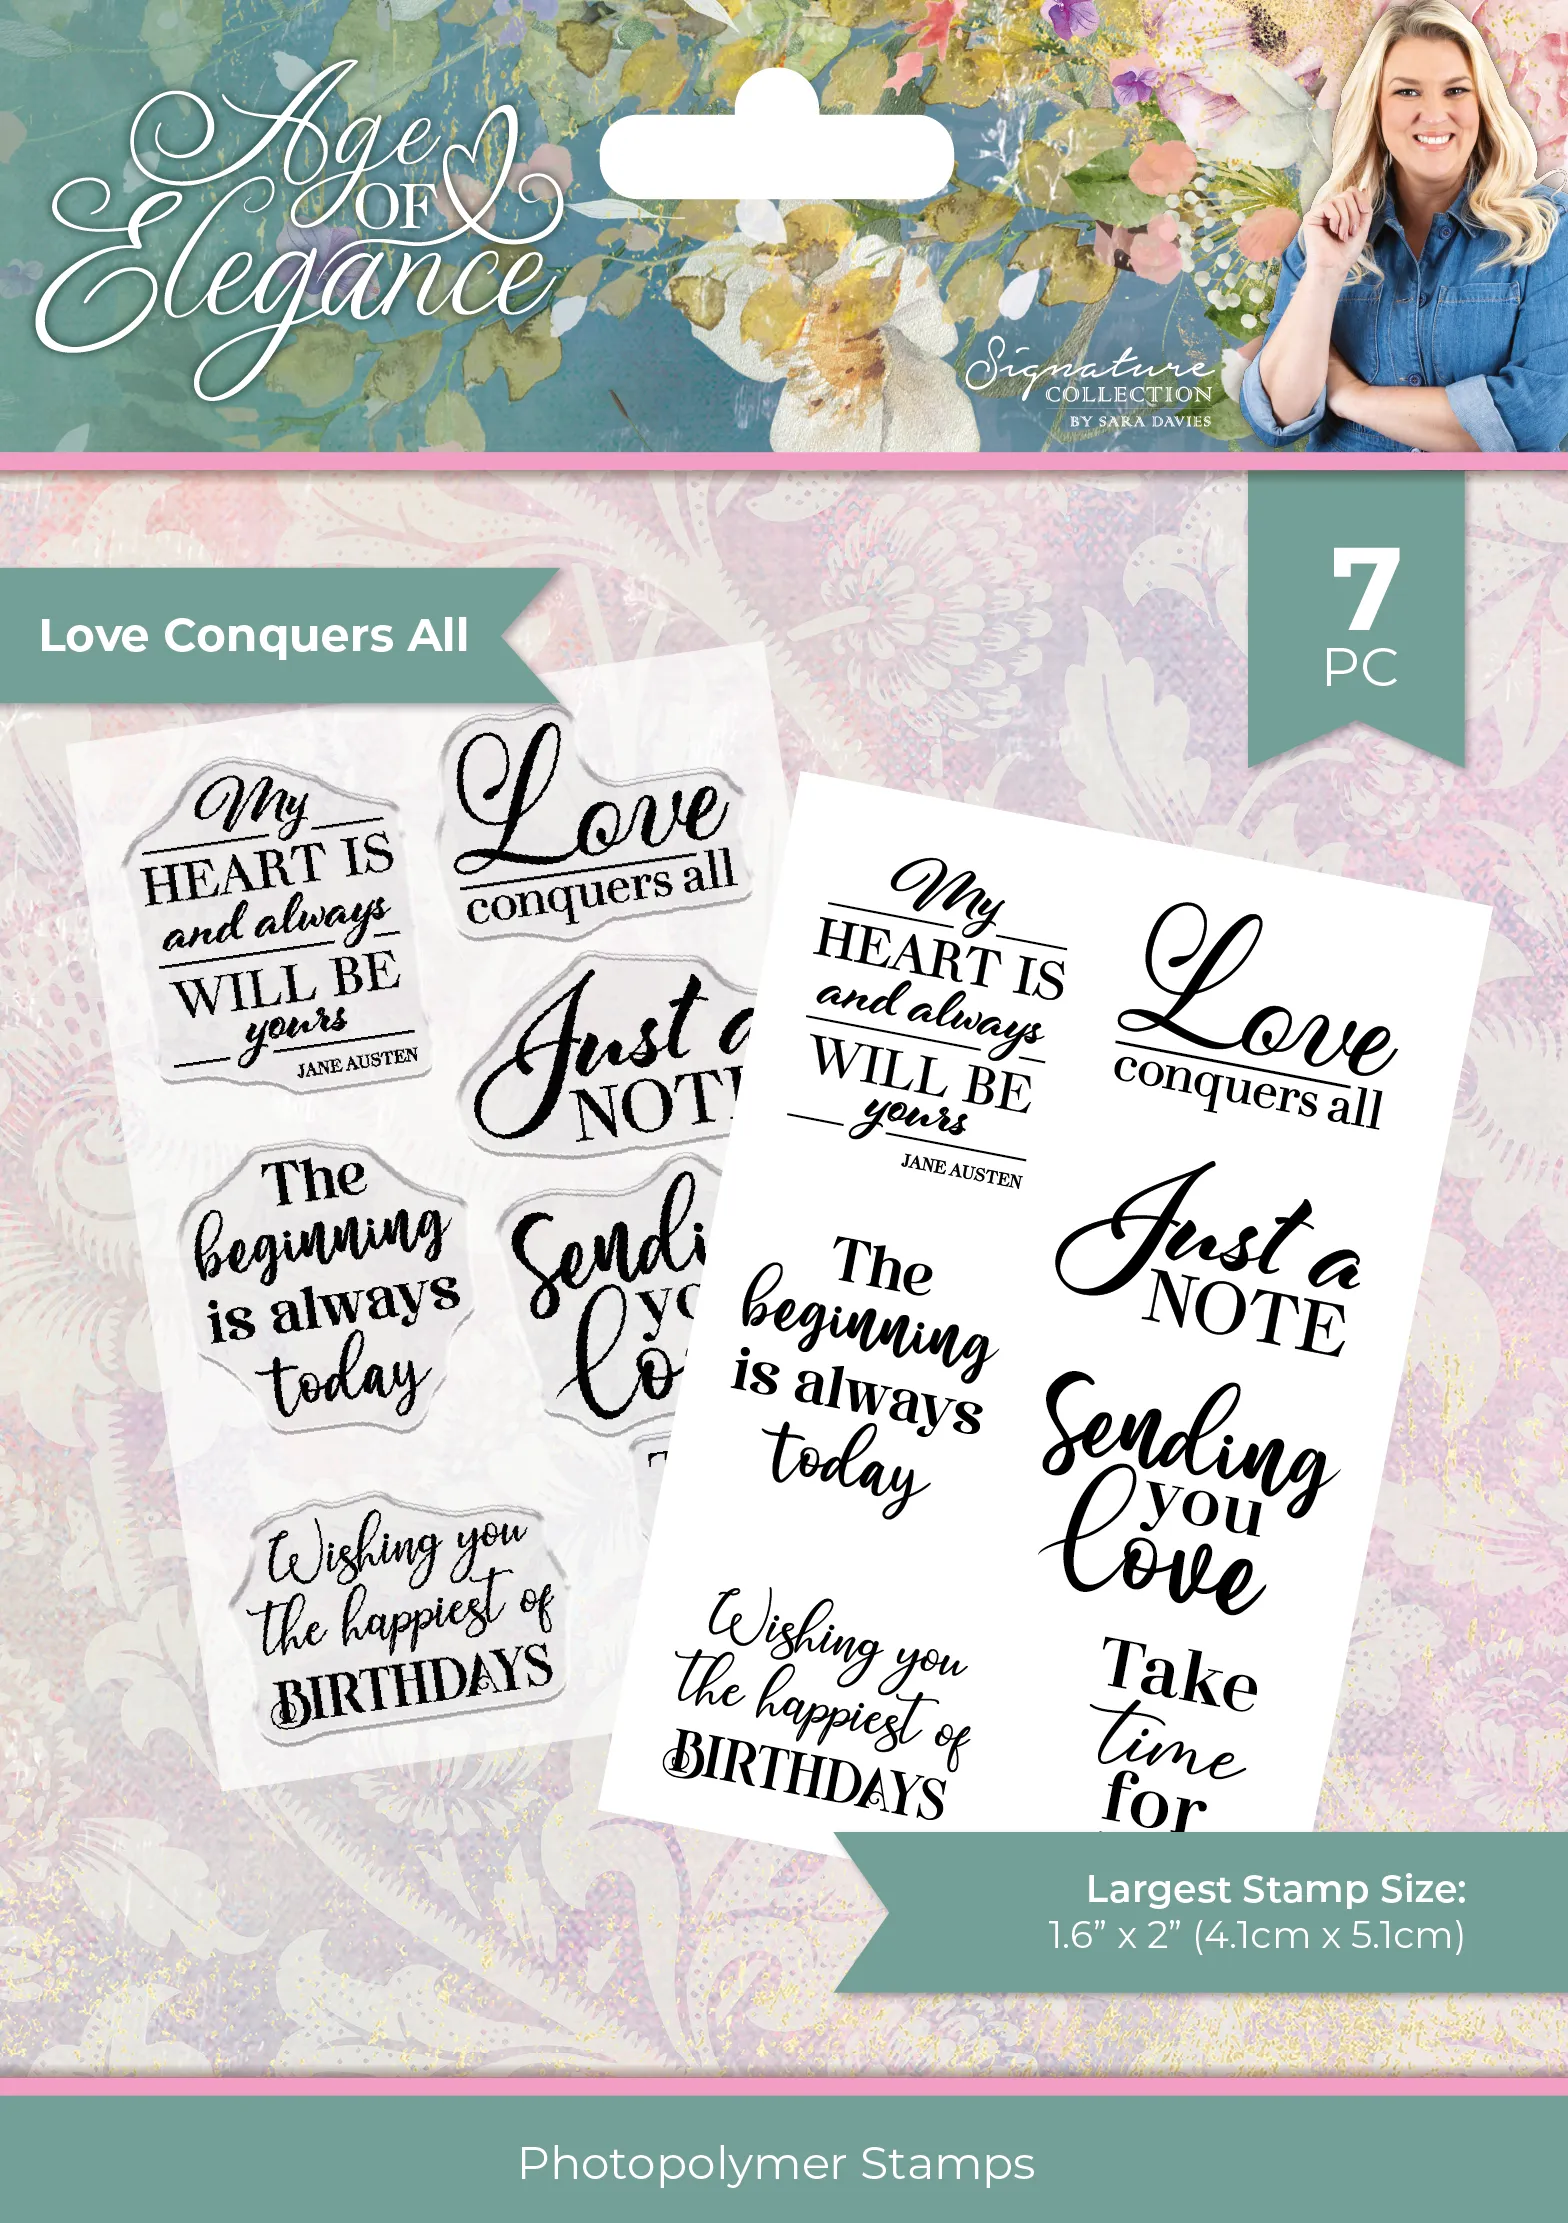 Age
OF
Elegance
Signature
COLLECTION
BY SARA DAVIES
7
PC
Love Conquers All
My
HEART IS
and always
WILL BE
yours
JANE AUSTEN
Love
conquers all
Just a
NOT
The
beginning
is always
today
Sendi
yo
Lo
T
Wishing you
the happiest of
BIRTHDAYS
My
HEART IS
and always
WILL BE
yours
JANE AUSTEN
Love
conquers all
Just a
NOTE
The
beginning
is always
today
Sending
you
Love
Wishing you
the happiest of
BIRTHDAYS
Take
time
for
Largest Stamp Size:
1.6” x 2” (4.1cm x 5.1cm)
Photopolymer Stamps